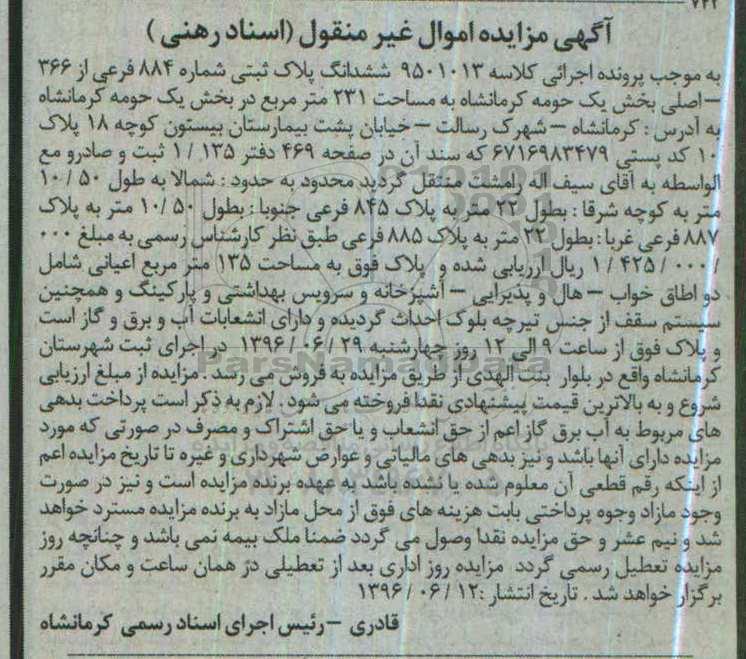 ۷۲۲
آگهی مزایده اموال غیر منقول (اسناد رهنی )
به موجب پرونده اجرائی کلاسه ۹۵۰۱۰۱۳ ششدانگ پلاک ثبتی شماره ۸۸۴ فرعی از ۳۶۶
–اصلی بخش یک حومه کرمانشاه به مساحت ۲۳۱ متر مربع در بخش یک حومه کرمانشاه
به آدرس : کرمانشاه – شهرک رسالت – خیابان پشت بیمارستان بیستون کوچه ۱۸ پلاک
۱۰ کد پستی ۶۷۱۶۹۸۳۴۷۹ که سند آن در صفحه ۴۶۹ دفتر ۱۳۵ / ۱ ثبت و صادرو مع
الواسطه به آقای سیف اله رامشت منتقل گردید محدود به حدود : شمالا به طول ۵۰ / ۱۰
متر به کوچه شرقا : بطول ۲۲ متر به پلاک ۸۴۵ فرعی جنوبا : بطول ۵۰ /۱۰ متر به پلاک
۸۸۷ فرعی غربا : بطول ۲۲ متر به پلاک ۸۸۵ فرعی طبق نظر کارشناس رسمی به مبلغ ۰۰۰
/ ۰۰۰ / ۴۲۵ / ۱ ریال ارزیابی شده و پلاک فوق به مساحت ۱۳۵ متر مربع اعیانی شامل
دو اطاق خواب – هال و پذیرایی – آشپزخانه و سرویس بهداشتی و پارکینگ و همچنین
سیستم سقف از جنس تیرچه بلوک احداث گردیده و دارای انشعابات آب و برق و گاز است
و پلاک فوق از ساعت ۹ الی ۱۲ روز چهارشنبه ۲۹ / ۰۶ / ۱۳۹۶ در اجرای ثبت شهرستان
کرمانشاه واقع در بلوار بنت الهدی از طریق مزایده به فروش می رسد . مزایده از مبلغ ارزیابی
شروع و به بالاترین قیمت پیشنهادی نقدا فروخته می شود . لازم به ذکر است پرداخت بدهی
های مربوط به آب برق گاز اعم از حق انشعاب و یا حق اشتراک و مصرف در صورتی که مورد
مزایده دارای آنها باشد و نیز بدهی های مالیاتی و عوارض شهرداری و غیره تا تاریخ مزایده اعم
از اینکه رقم قطعی آن معلوم شده یا نشده باشد به عهده برنده مزایده است و نیز در صورت
وجود مازاد وجوه پرداختی بابت هزینه های فوق از محل مازاد به برنده مزایده مسترد خواهد
شد و نیم عشر و حق مزایده نقدا وصول می گردد ضمنا ملک بیمه نمی باشد و چنانچه روز
مزایده تعطیل رسمی گردد مزایده روز اداری بعد از تعطیلی در همان ساعت و مکان مقرر
برگزار خواهد شد . تاریخ انتشار :۱۲ / ۰۶ / ۱۳۹۶
قادری –رئیس اجرای اسناد رسمی کرمانشاه
ParsNamadData